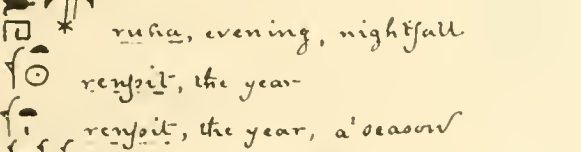 ruha, evening, nightfall
renpit, the year
renpit, the year, a season